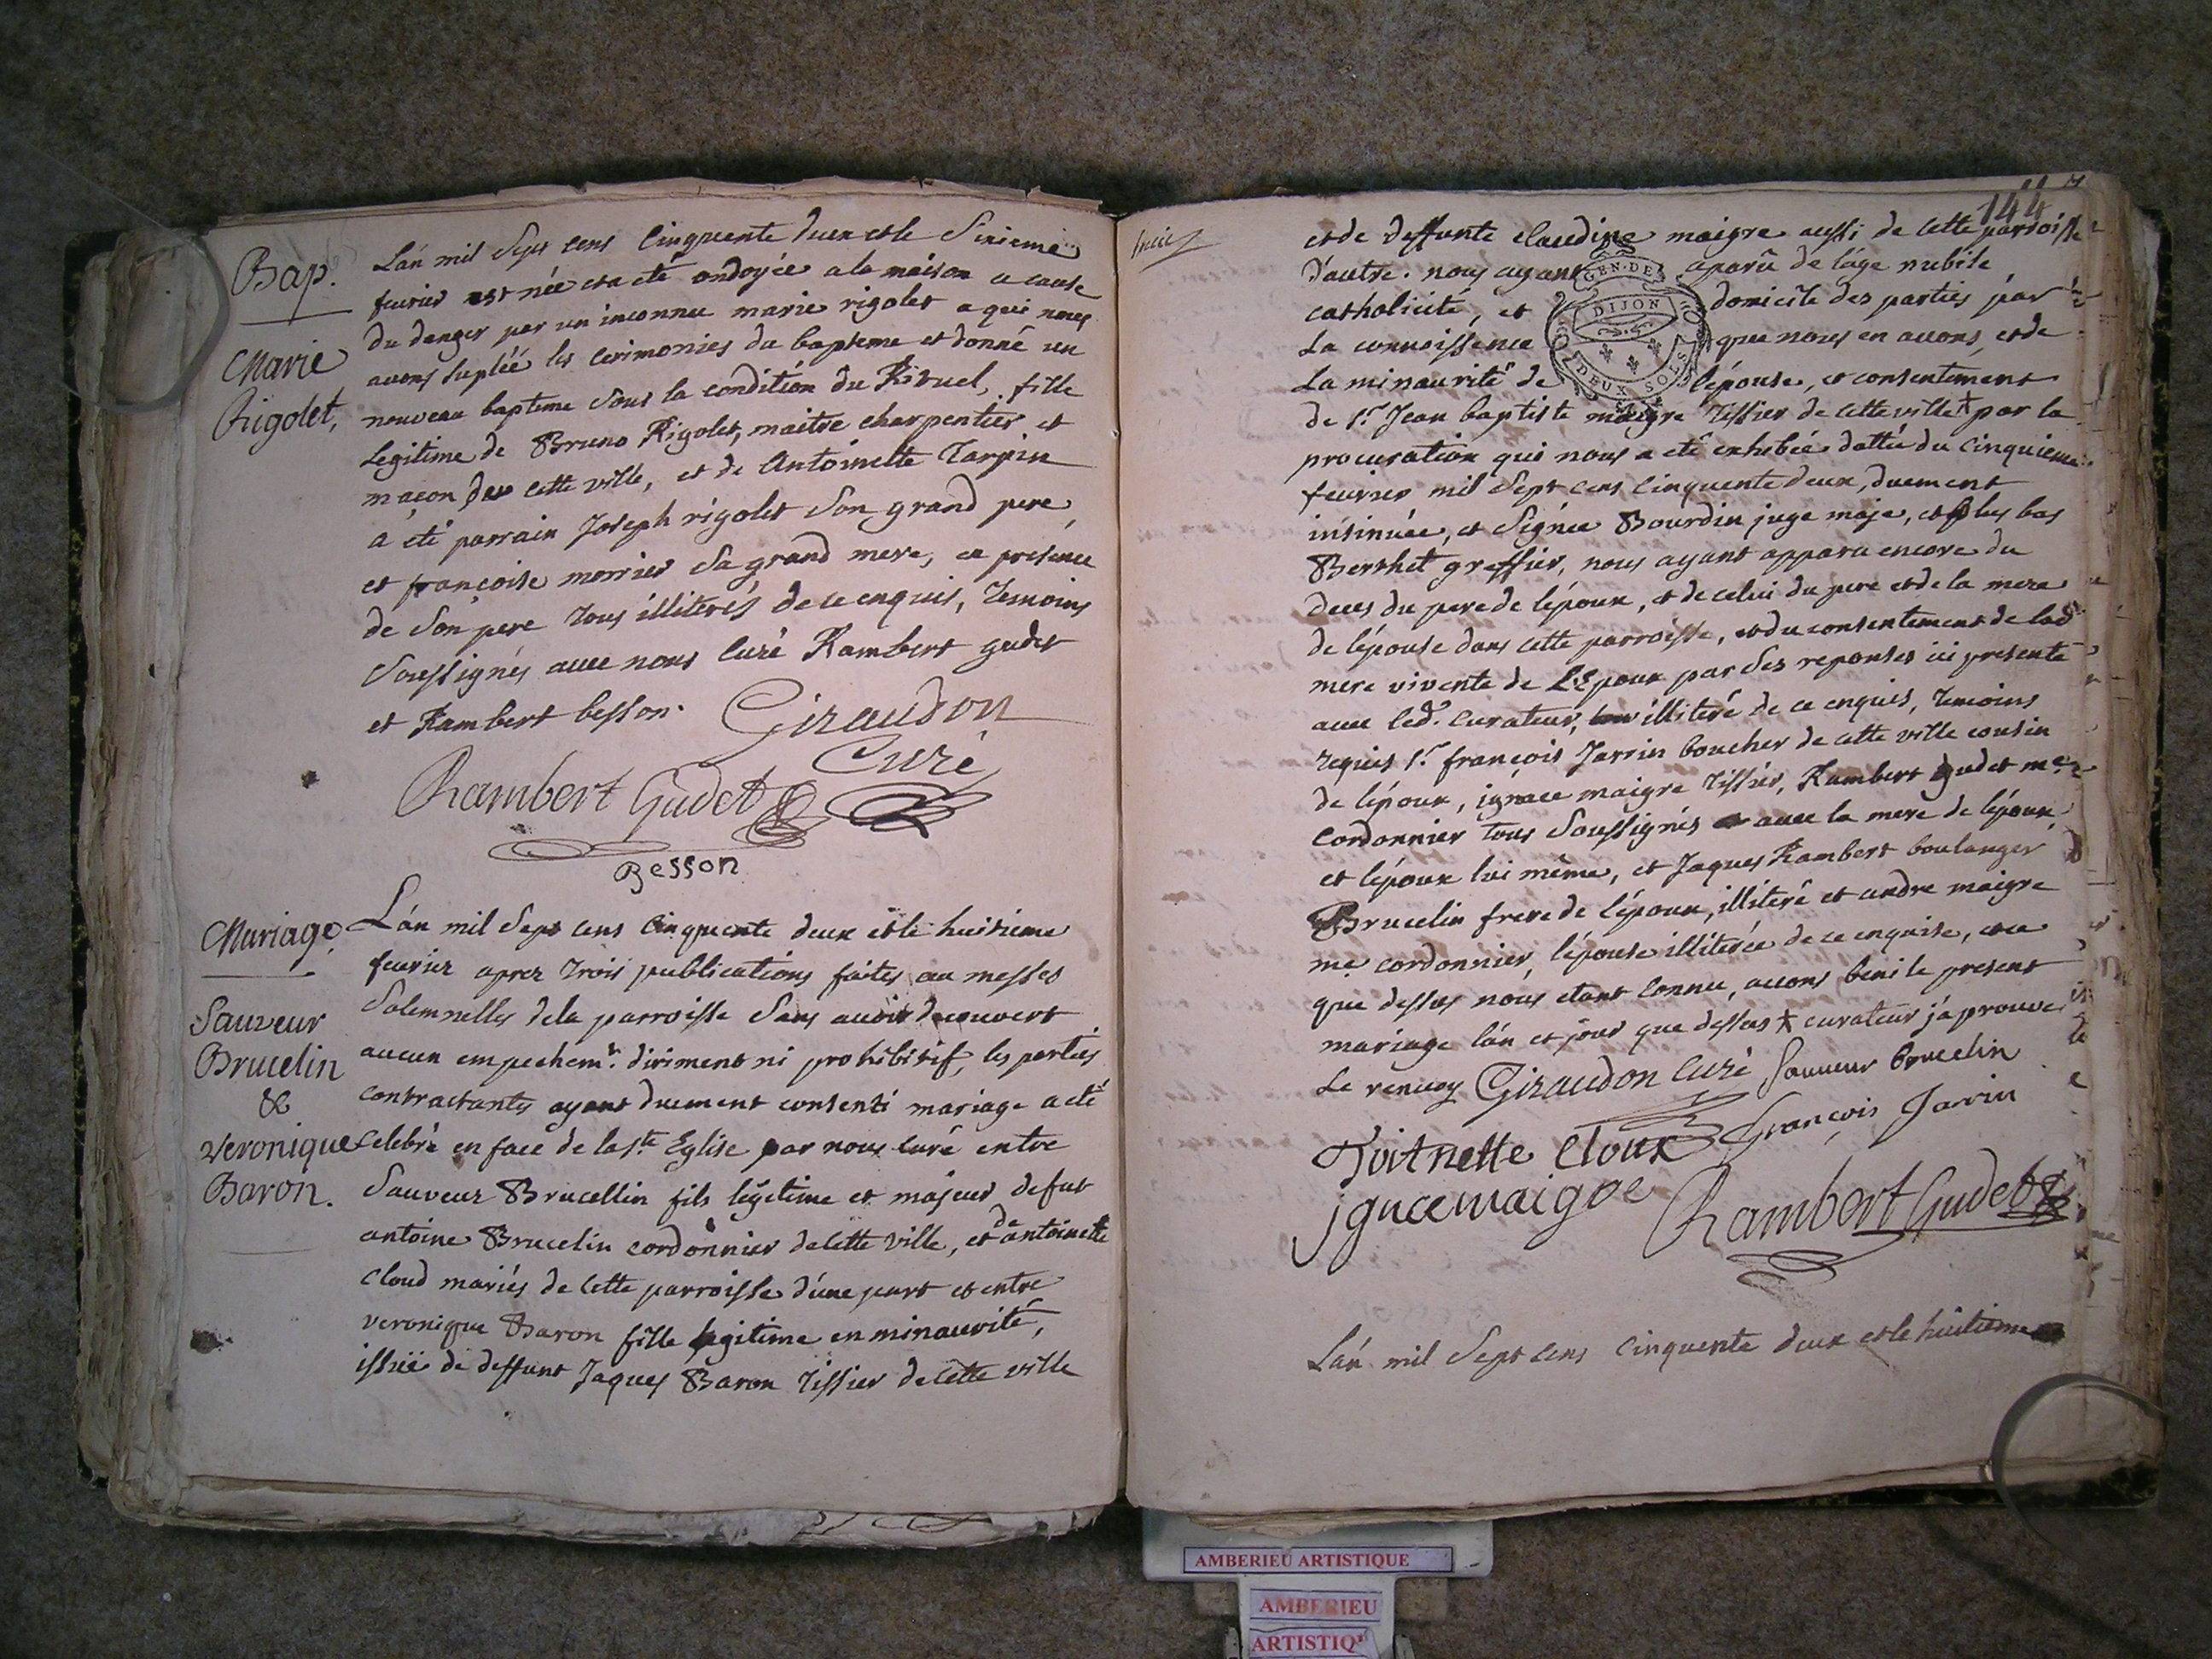 Bap.
Marie
Rigolet,
L'án mil Sept cens Cinquente deux et le Sixieme
feuvrier est née et a eté ondoyée a la maison a cause
du danger par un inconnu marie rigolet a qui nous
avons suplée les cerimonies du bapteme et donné un
nouveau bapteme sous la condition du Rituel, fille
legitime de Bruno Rigolet, maitre charpentier et
maçon de cette ville, et de Antoinette Tarpin
a été parrain Joseph rigolet son grand pere,
et françoise morrier sa grand mere, en presence
de son pere tous illiterés de ce enquis, temoins
soussignés avec nous curé Rambert gudet
et Rambert besson.
Giraudon
Curé
Rambert Gudet
Besson
Mariage
Sauveur
Brucelin
&
Veronique
Baron.
L'án mil Sept cens Cinquente deux et le huitieme
feuvrier aprez trois publications faites au messes
Solemnelles de la parroisse sans avoir decouvert
aucun empechem.t diriment ni prohibitif, les parties
contractantes ayant duement consenti mariage a eté
celebré en face de la s.te Eglise par nous curé entre
Sauveur Brucellin fils légitime et majeur de fut
antoine Brucelin cordonnier de cette ville, et d'antoinette
Cloud mariés de cette parroisse d'une part et entre
veronique Baron fille legitime en minaurité,
issüe de deffunt Jaques Baron tissier de cette ville
144
et de deffunte claudine maigre aussi de cette parroisse
d'autre. nous ayant aparû de l'áge nubile,
catholicité, et domicile des parties par
La connoissence que nous en avons, et de
La minaurité de l'épouse, et consentiment
GEN. DE
DIJON
DEUX SOLS
de s.r Jean baptiste maigre tissier de cette ville + par la
procuration qui nous a eté exhibée dattée du cinquieme
feuvrier mil Sept cens cinquente deux, duement
insinuée, et signée Bourdin juge maje, et plus bas
Berthet greffier, nous ayant apparu encore du
deces du pere de l'époux, et de celui du pere et de la mere
de l'épouse dans cette parroisse, et du consentement de lad.
mere vivente de L'Epoux par ses reponses ici presente
avec led. curateur, illiteré de ce enquis, temoins
requis s.r françois Jarrin boucher de cette ville cousin
de l'époux, ignace maigre tissier, Rambert gudet m.e
cordonnier tous soussignés avec la mere de l'époux,
et l'époux lui même, et Jaques Rambert boulanger
Brucelin frere de l'époux, illiteré et andre maigre
m.e cordonnier, l'épouse illiterée de ce enquise, et ce
que dessus nous etant connu, avons beni le present
mariage l'án et jour que dessus + curateur j'aprouve
Le renvoy Giraudon Curé Sauveur brucelin
François Jarin
Toitnette Cloux
jgnace maigre
Rambert Gudet
L'án mil Sept cens Cinquente deux et le huitieme
AMBERIEU ARTISTIQUE
AMBERIEU
ARTISTIQ